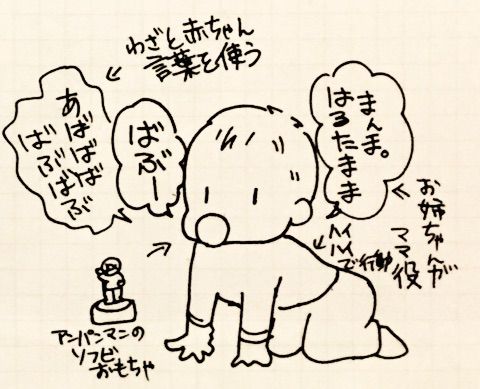 わざと赤ちゃん
言葉を使う
まんま。
はるたまま
ばぶー
あばばば
ばぶばぶ
お姉ちゃんが
ママ役
ハイ
ハイで行動
アンパンマンの
ソフビ
おもちゃ